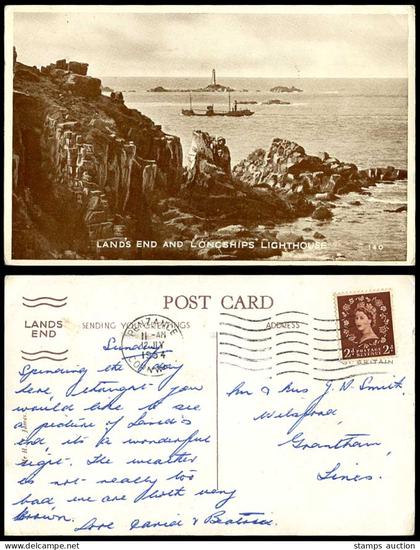 LANDS END AND LONGSHIPS LIGHTHOUSE
140
POST CARD
LANDS
END
SENDING YOU GREETINGS
PENZANCE
11 - AM
12 JLY
1954
CORNWALL
2D POSTAGE REVENUE 2D
BRITAIN
Sunday
Spending the day
here, thought you
would like to see
a picture of Land's
End its a wonderful
sight. The weather
is not really too
bad we are both very
brown.
Love David & Beatrice
Mr & Mrs J. N. Smith.
Welsford,
Grantham
Lincs.
stamps auction
stamps auction